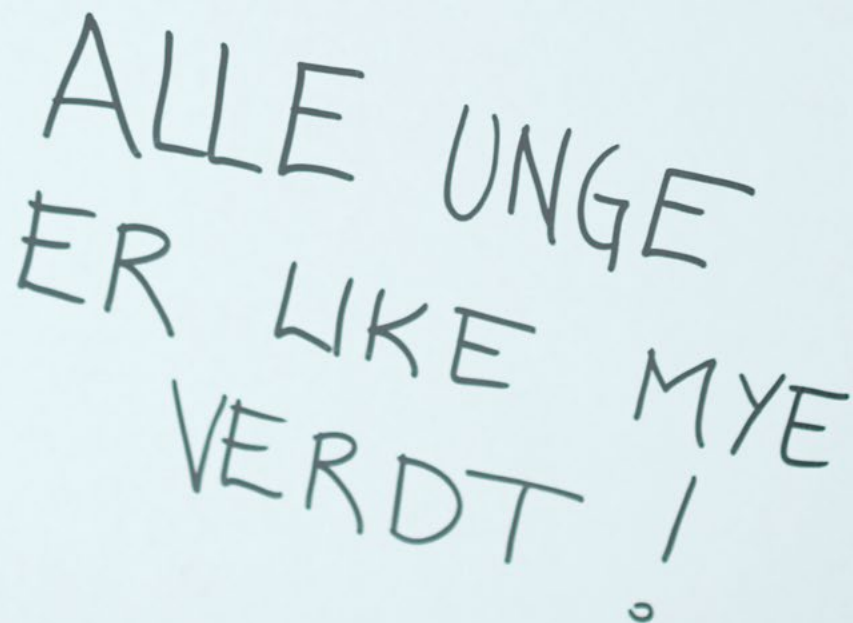 ALLE UNGE
ER LIKE MYE
VERDT!